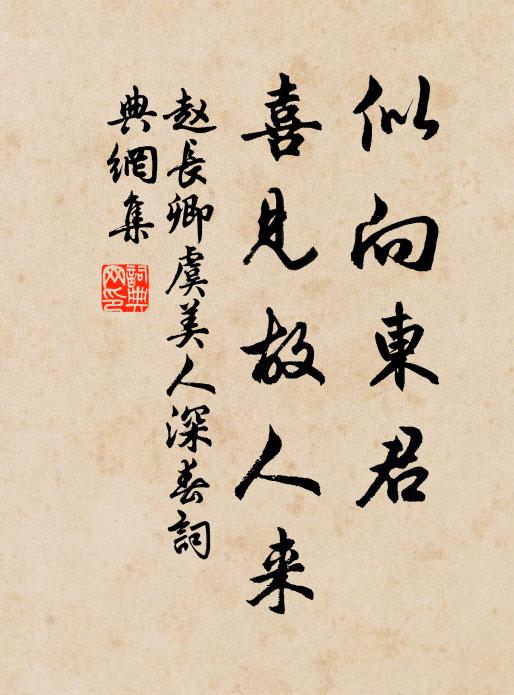 似向東君
喜見故人来
赵長卿虞美人深春詞
典網集
詞典网印